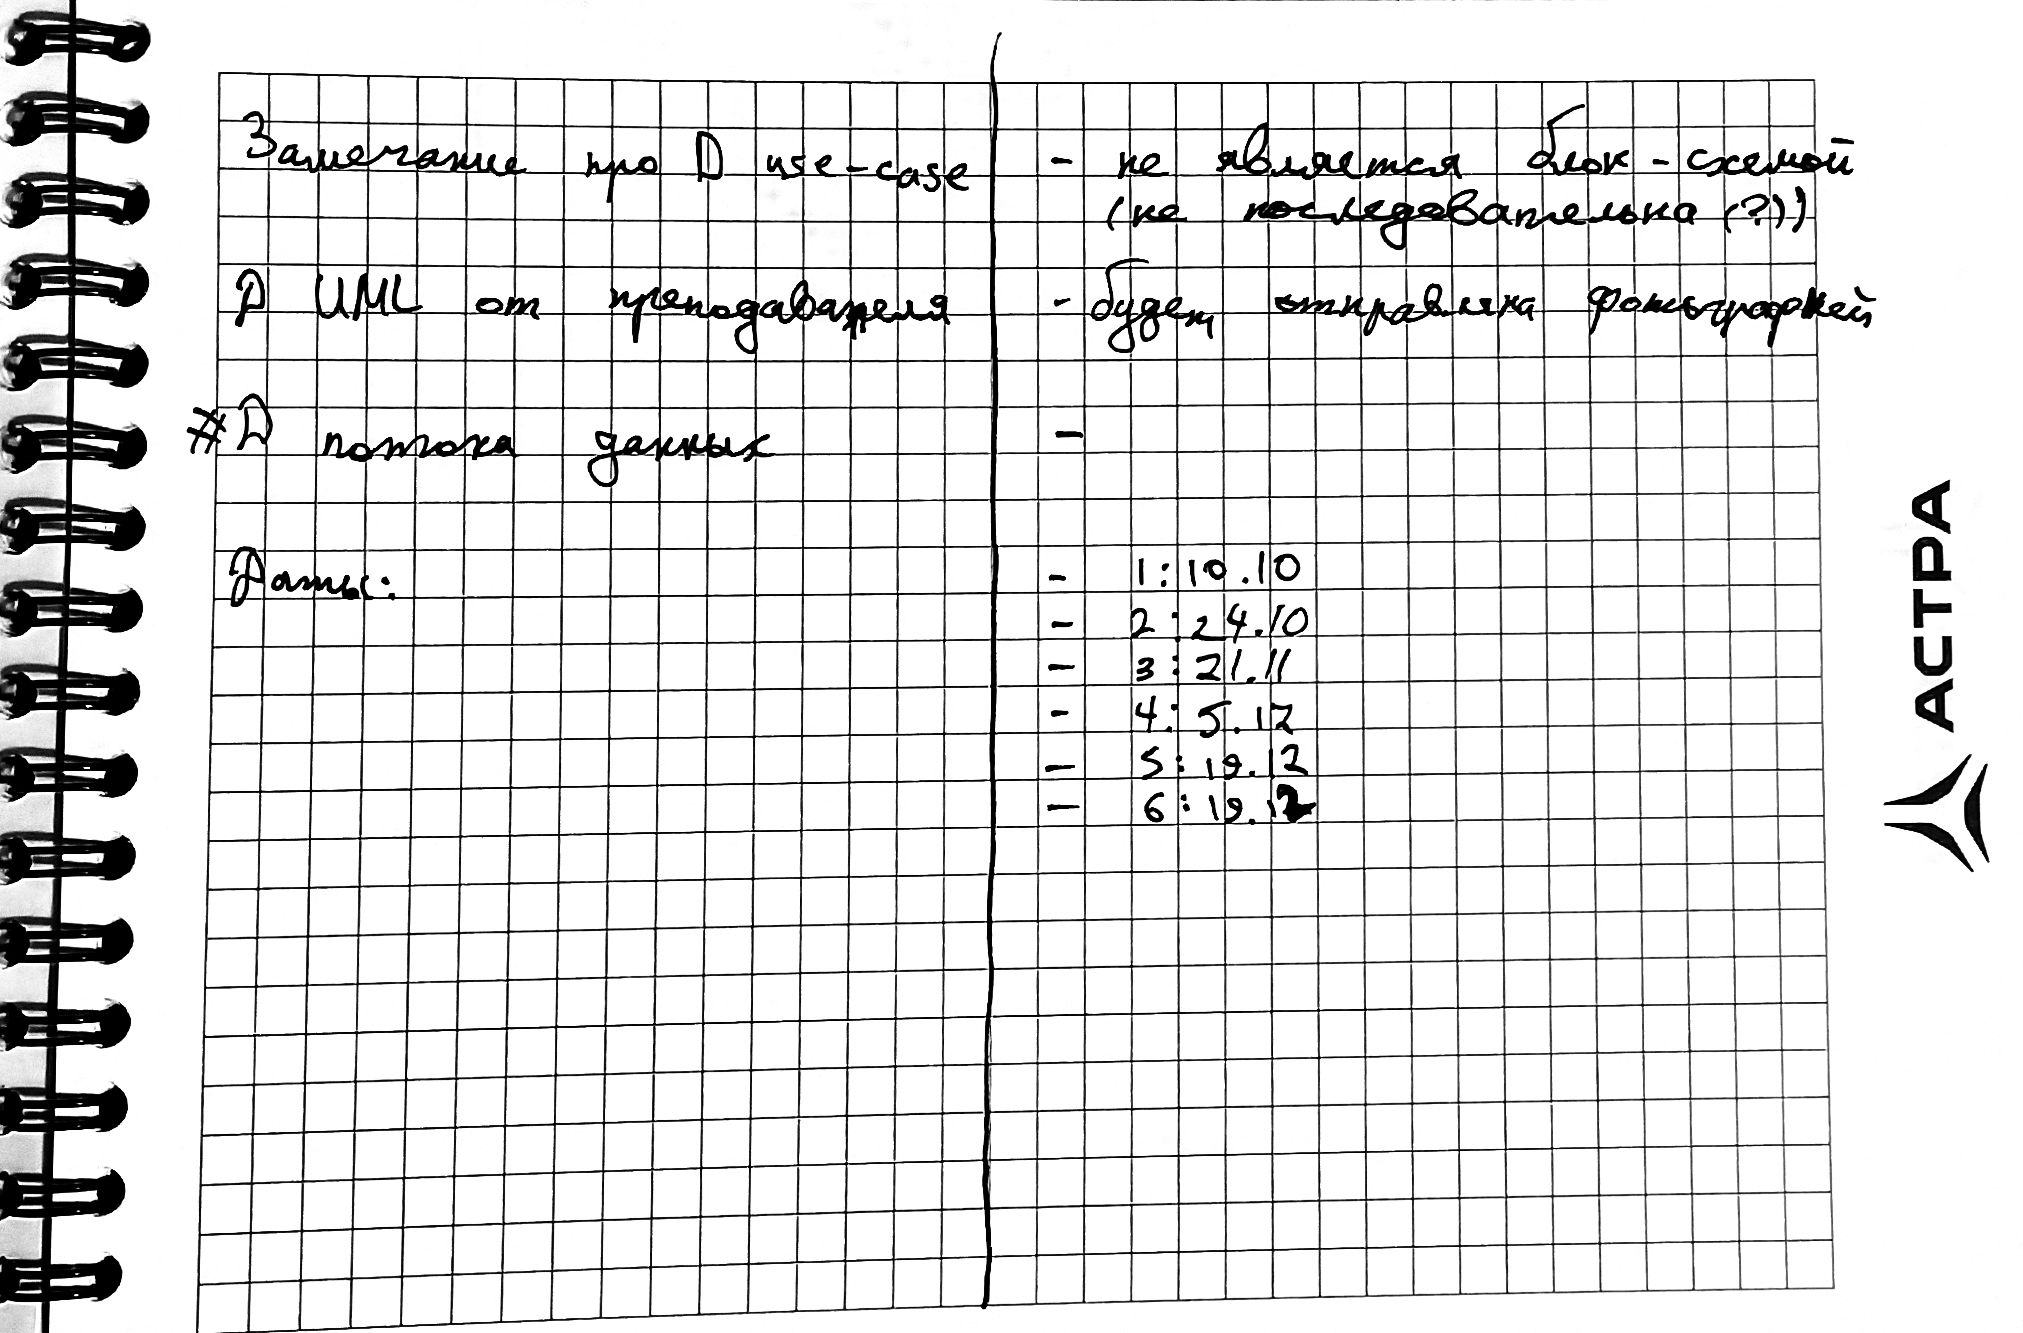 Замечание про D use-case - не является блок-схемой
(не последовательна (?))
D UML от преподавателя - будет отправлена фотографией
#D потока данных -
Даты: - 1:10.10
- 2:24.10
- 3:21.11
- 4:5.12
- 5:19.12
- 6:19.12
АСТРА